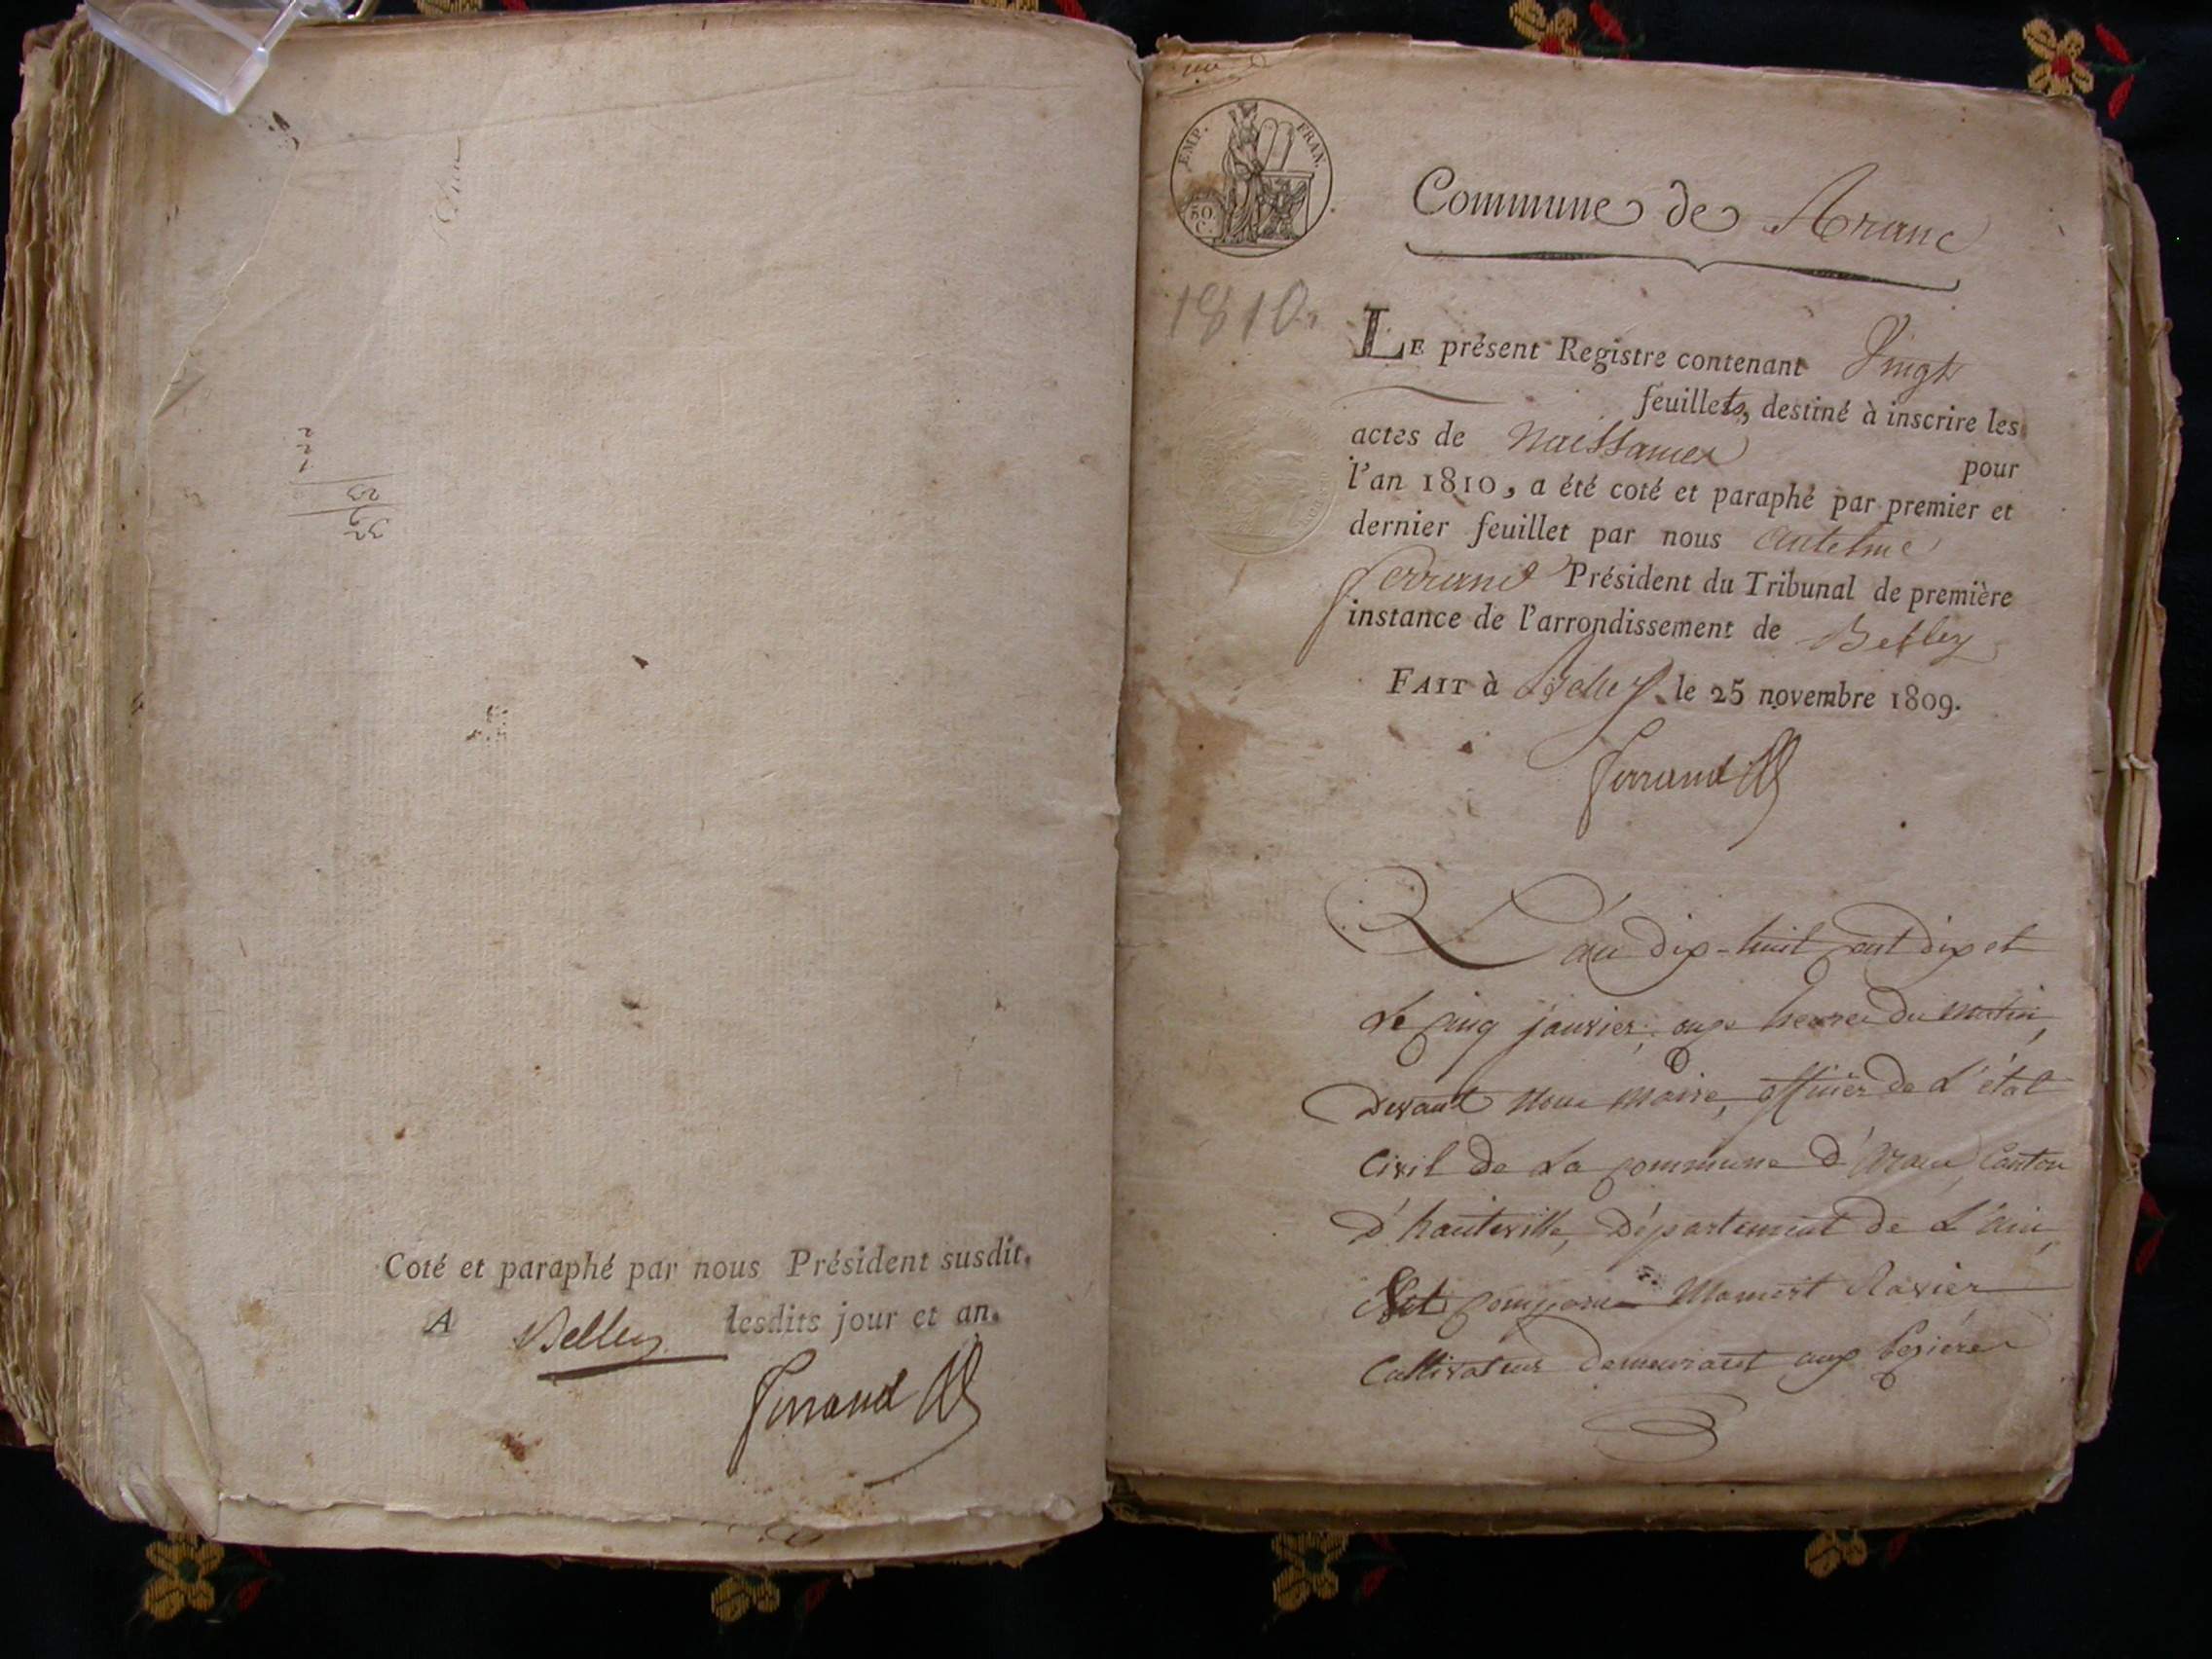 Coté et paraphé par nous Président susdit.
A Belley lesdits jour et an.
Ferrand
EMP. FRAN.
50
C.
1810.
Commune de Aranc
LE présent Registre contenant Vingt
feuillets, destiné à inscrire les
actes de Naissances pour
l'an 1810, a été coté et paraphé par premier et
dernier feuillet par nous Antelme
Ferrand Président du Tribunal de première
instance de l'arrondissement de Belley
FAIT à Belley le 25 novembre 1809.
Ferrand
L'an dix-huit cent dix et
le cinq janvier, onze heures du matin,
Devant nous maire, officier de L'état
Civil de La commune d'Aranc, Canton
d'hauteville, Département de L'ain,
Est comparu Mamert Ravier
Cultivateur demeurant aux